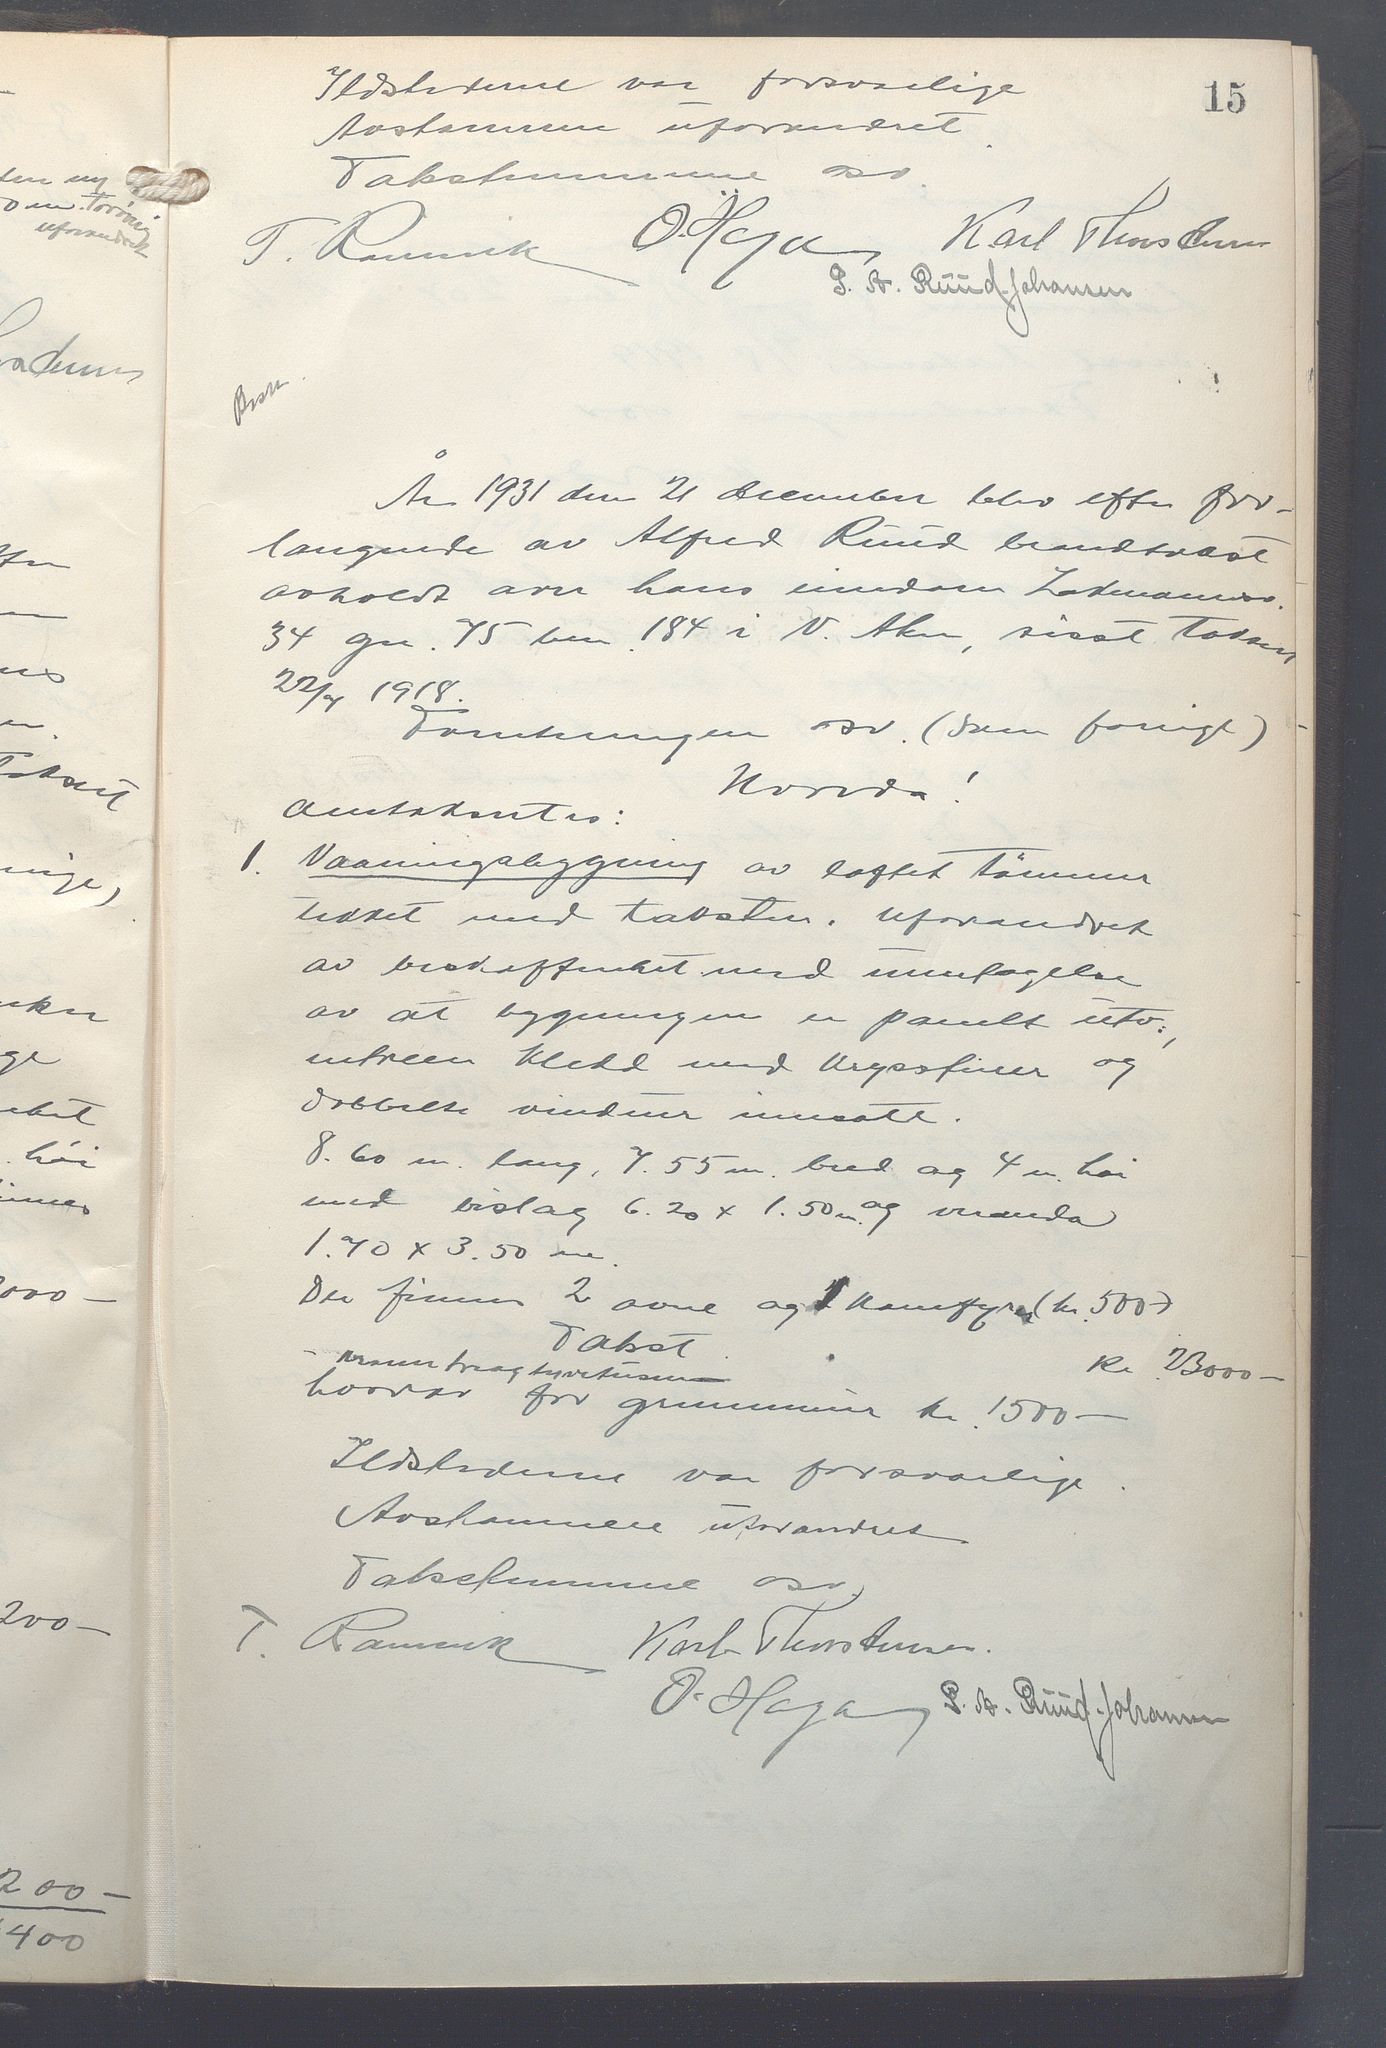 15
Ildstederne var forsvarlige
Avstannene uforandret.
Takstsummene osv.
T. Ramvik O. Haga Karl Thorstensen
P. A. Ruud-Johansen
År 1931 den 21 december blev efter for-
langende av Alfred Ruud brandtakst
avholdt over hans eiendom
34 gnr. 75 bnr. 184 i V. Aker, sisst takser
22/4 1918.
Forretningen osv. (som forrige)
Hvorda!
omtakseres:
1. Vaaningsbygning av loftet tømmer
tekket med taksten. Uforandret
av beskaffenhet med unntagelse
av at bygningen er panelt utv.,
entreen kledd med kryssfiner og
dobbelte vinduer innsatt.
8.60 m. lang, 7.55 m. bred og 4 m. høi
med bislag 6.20 x 1.50 m. og veranda
1.70 x 3.50 m.
Der finnes 2 ovne og 1 komfyr (kr. 500-)
Takst kr. 23000-
hvorav for grunnmur kr. 1500-
Ildstederne var forsvarlige.
Avstannene uforandret
Takstsummene osv.
T. Ramvik Karl Thorstensen.
O. Haga P. A. Ruud-Johansen
ten ny
uforandret
takset
høi
000-
200-
200-
400